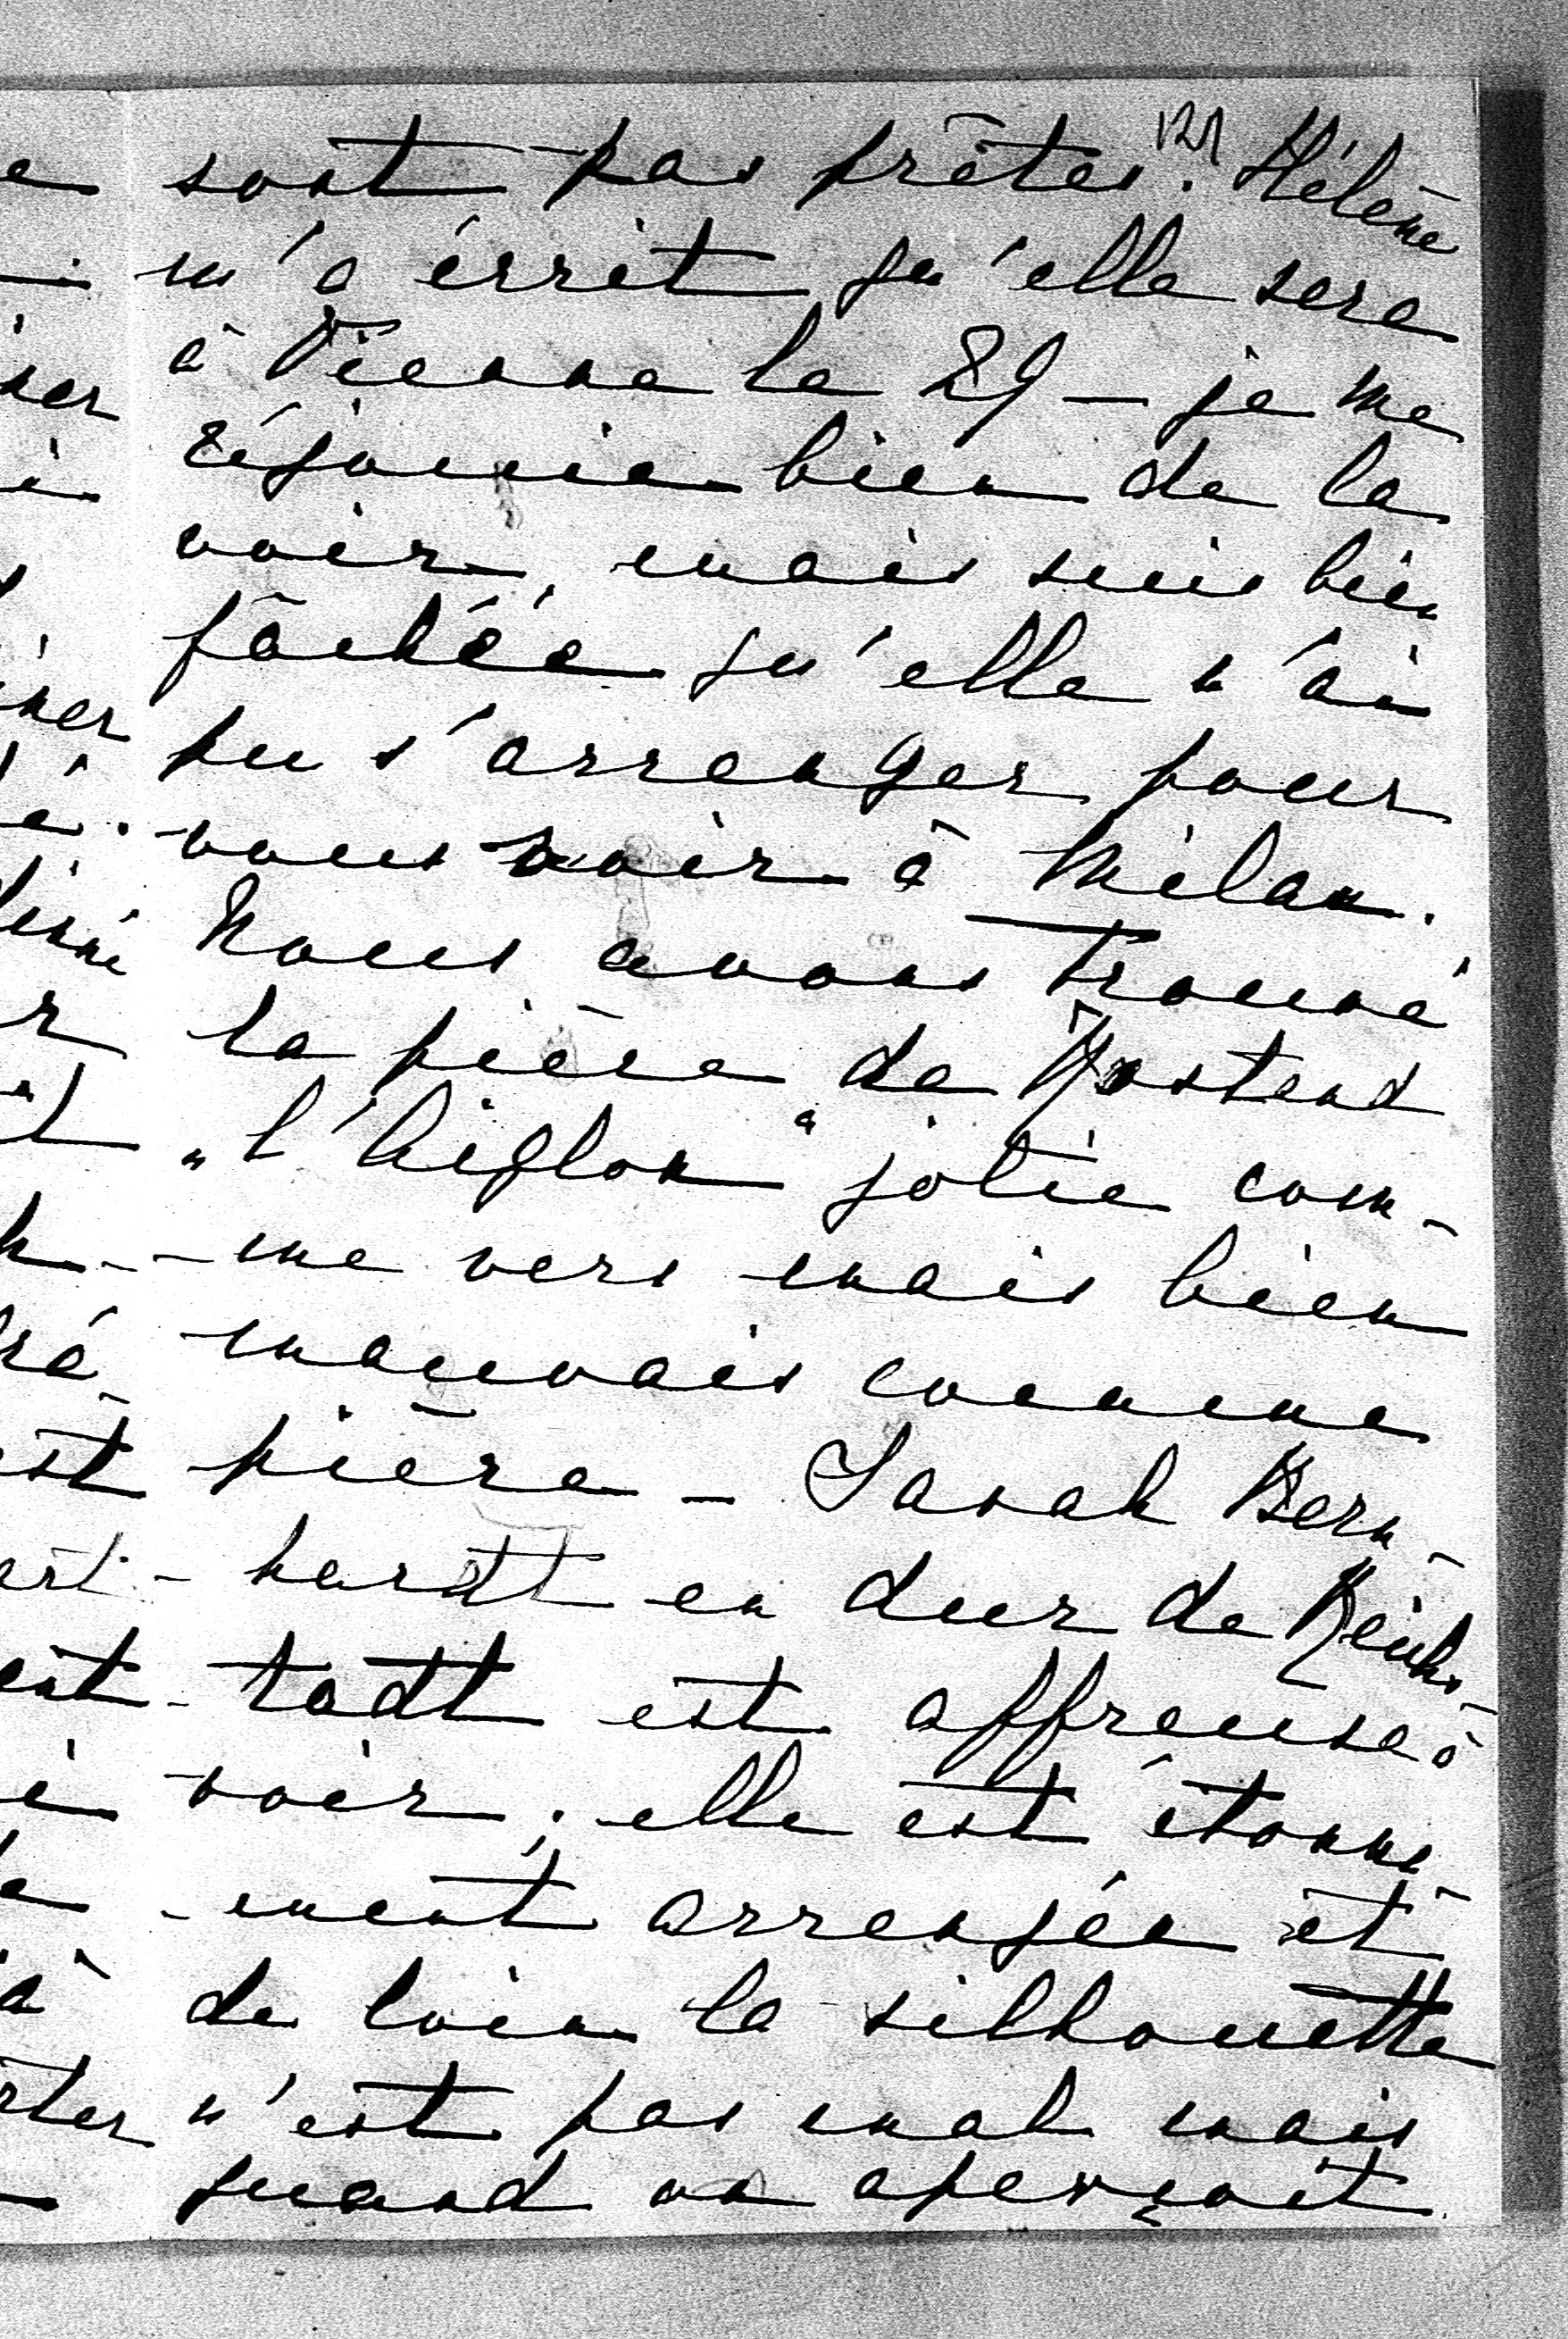 121
sont pas prêtes. Hélène
m'a écrit qu'elle sera
à Vienne le 29 – je me
réjouie bien de la
voir, mais suis bien
fâchée qu'elle n'ai
pu s'arranger pour
vous voir à Milan.
Nous avons trouvé
la pièce de Rostand
„l'Aiglon“ jolie com-
-me vers mais bien
mauvais comme
pièce – Sarah Bern-
-hardt en duc de Reichs-
-tadt est affreuse à
voir; elle est étonné-
-ment arrangée et
de loin la silhouette
n'est pas mal mais
quand on aperçoit